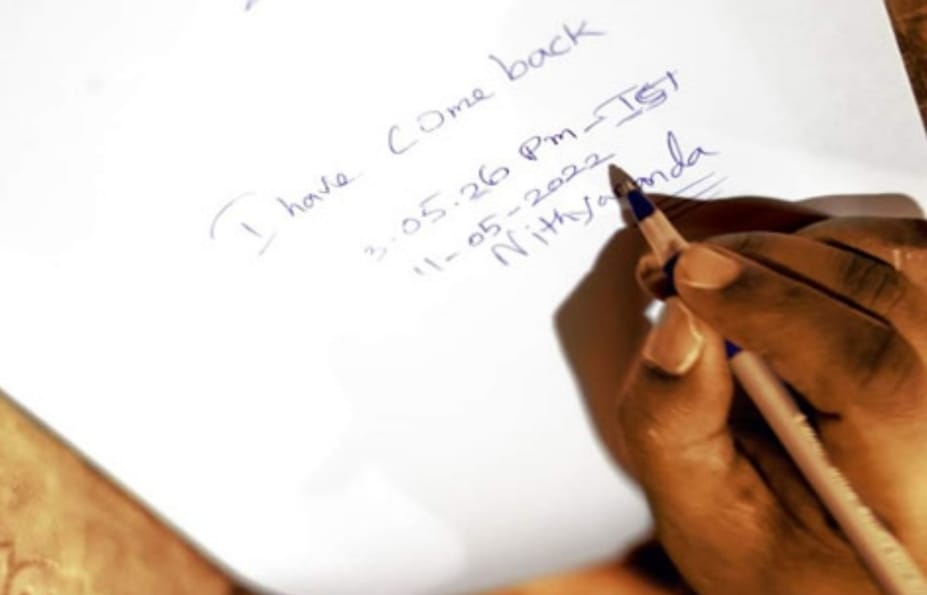 I have come back
3.05.26 Pm - IST
11-05-2022
Nithyananda